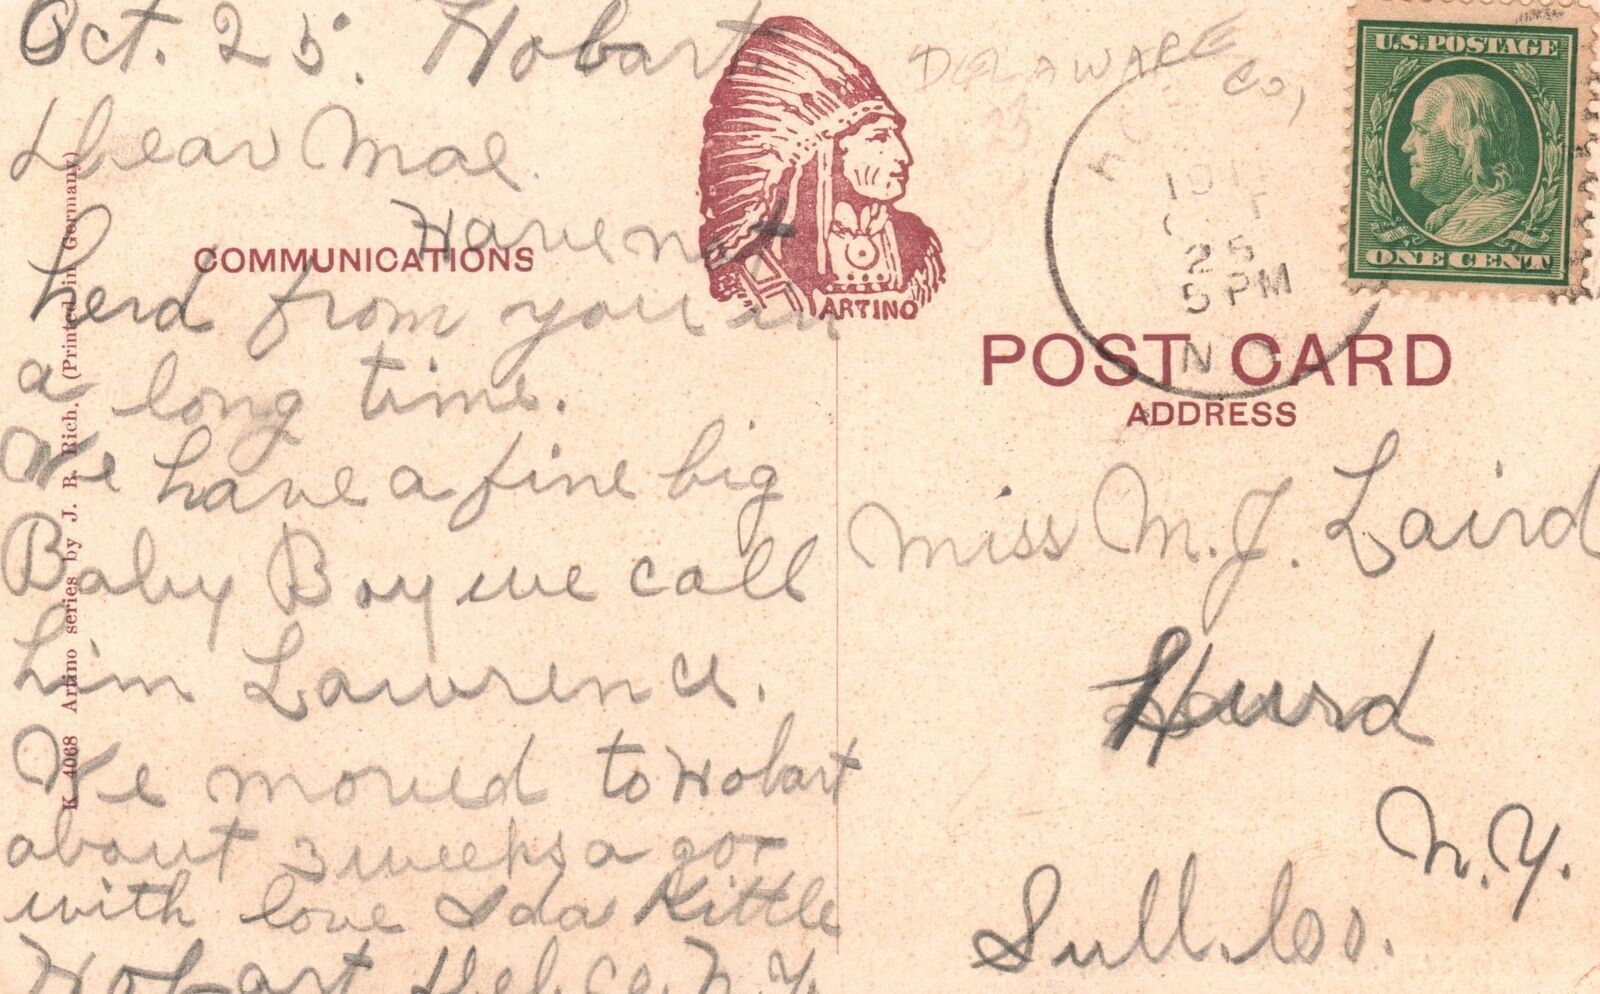 Oct. 25. Hobart
Dear Mae.
Have not
herd from you in
a long time.
We have a fine big
Baby Boy we call
him Lawrence.
We moved to Hobart
about 3 weeks a go
with love Ida Kittle
Hobart Del. Co. N.Y.
COMMUNICATIONS
K 4068 Artino series by J. R. Rich. (Printed in Germany)
ARTINO
DELAWARE
Co,
25
OCT
25
5 PM
N.Y.
U.S. POSTAGE
ONE CENT
POST CARD
ADDRESS
Miss M. J. Laird
Hurd
N.Y.
Sull. Co.